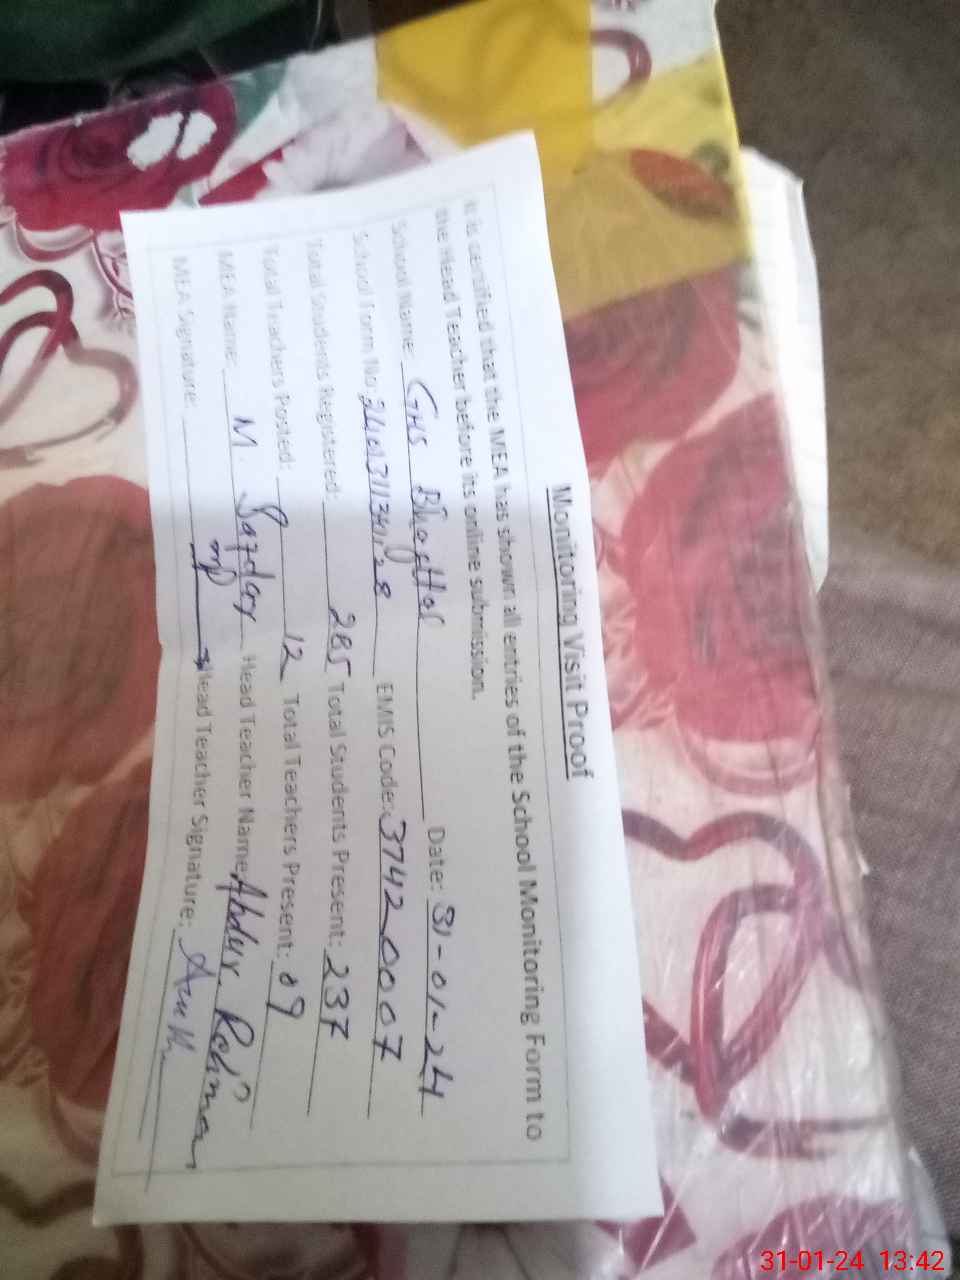 Monitoring Visit Proof
It is certified that the MEA has shown all entries of the School Monitoring Form to
the Head Teacher before its online submission.
School Name: GHS Bhagthal Date: 31-01-24
School Form No: EMIS Code: 37420007
Total Students Registered: 285 Total Students Present: 237
Total Teachers Posted: 12 Total Teachers Present: 09
MEA Name: M. Head Teacher Name: Abdur Rehman
MEA Signature: Head Teacher Signature:
31-01-24 13:42